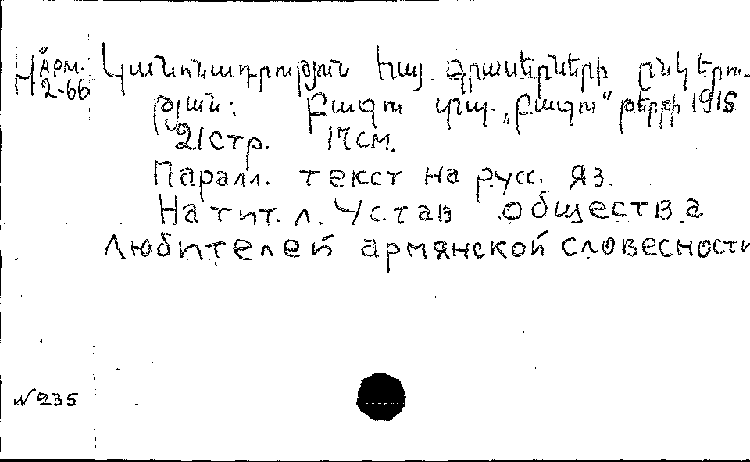 Н АРМ. 2-66
Կանոնադրության հայ գրասերների ընկերու-
թյան: Բագու տպ. „Բագու" թերթի 1915
21стр. 17см.
Паралл. текст на русс. яз.
На тит. л. Устав общества
любителей армянской словесности
№235